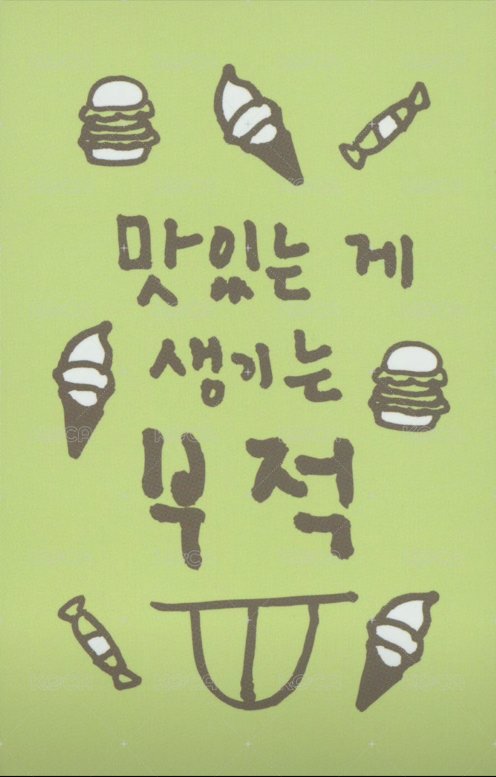 맛있는 게
생기는
부적